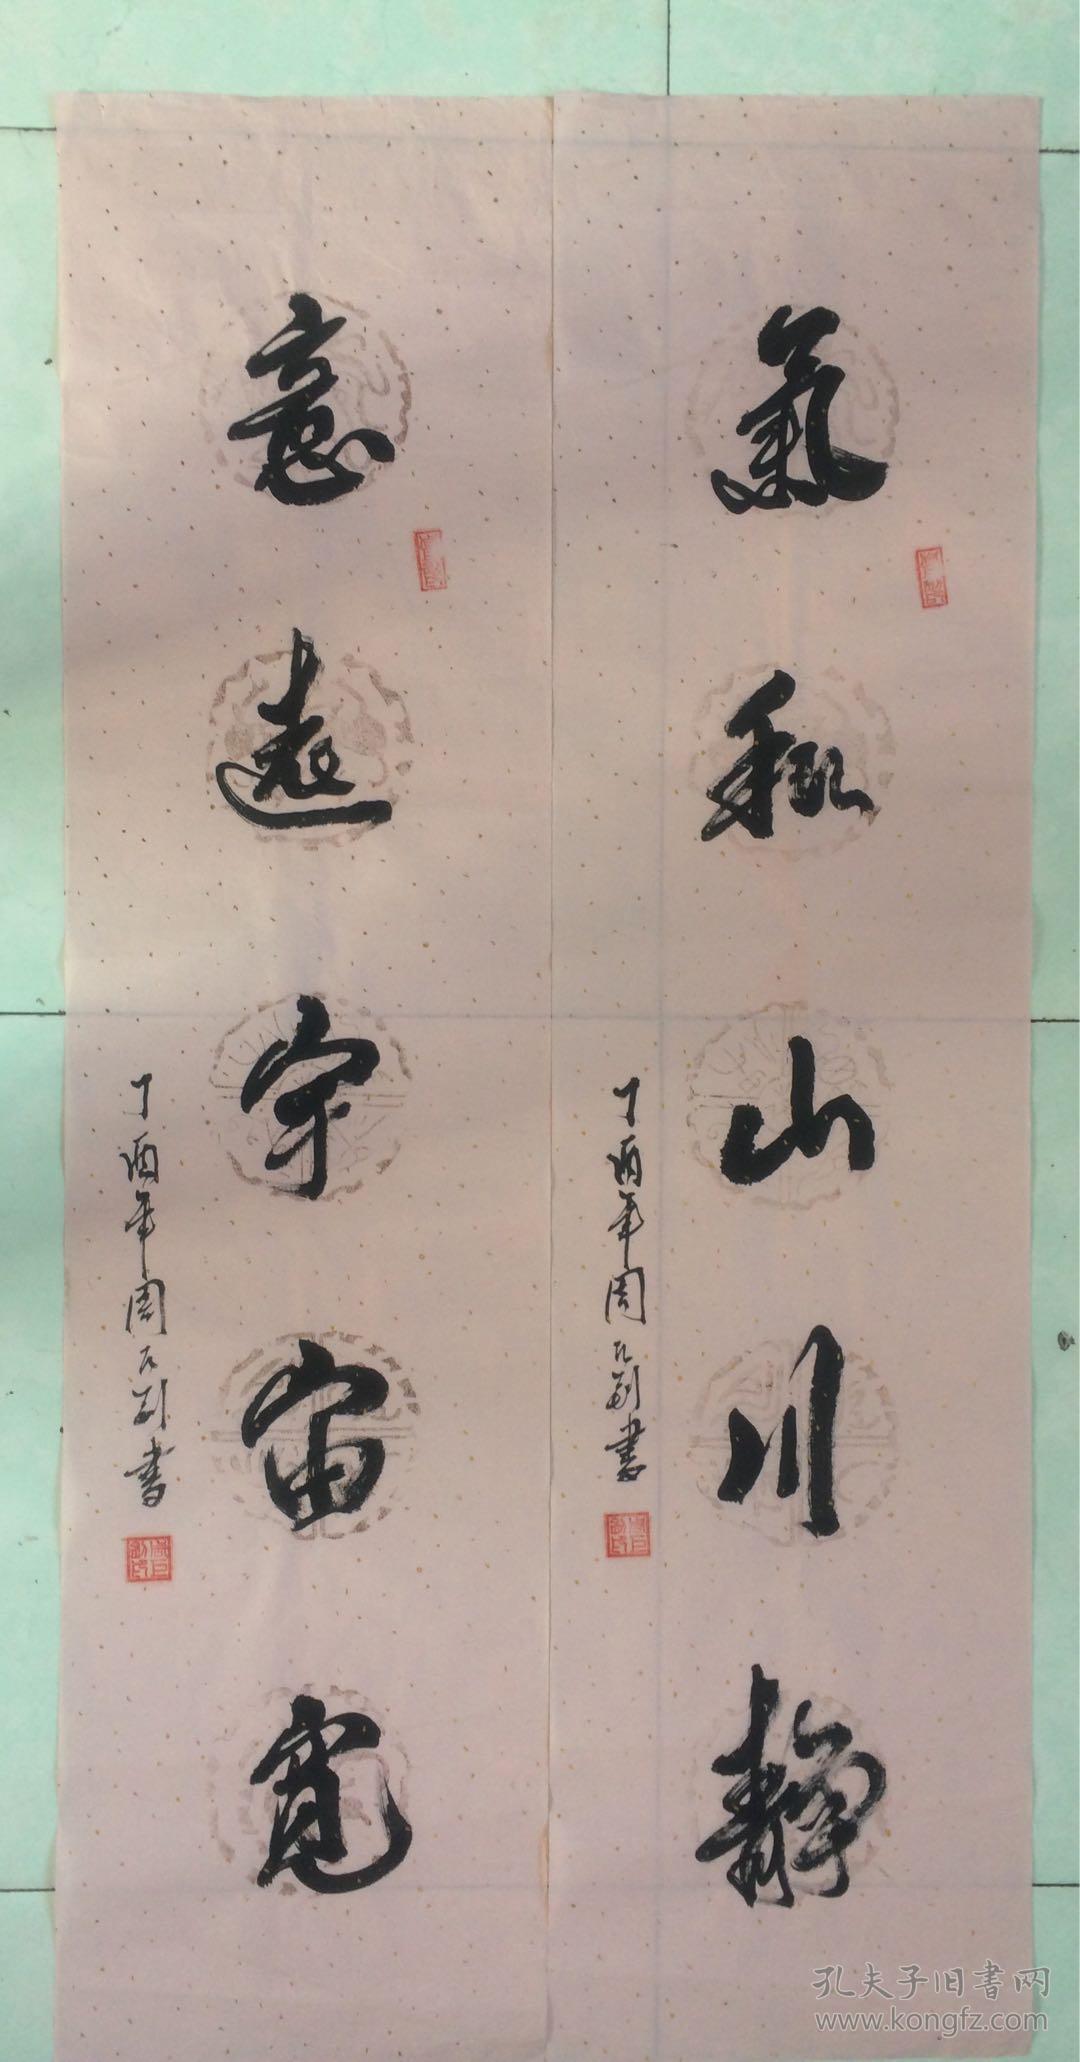 氣和山川静
丁酉年周
書
意遠宇宙寬
丁酉年周
書
孔夫子旧書网
www.kongfz.com